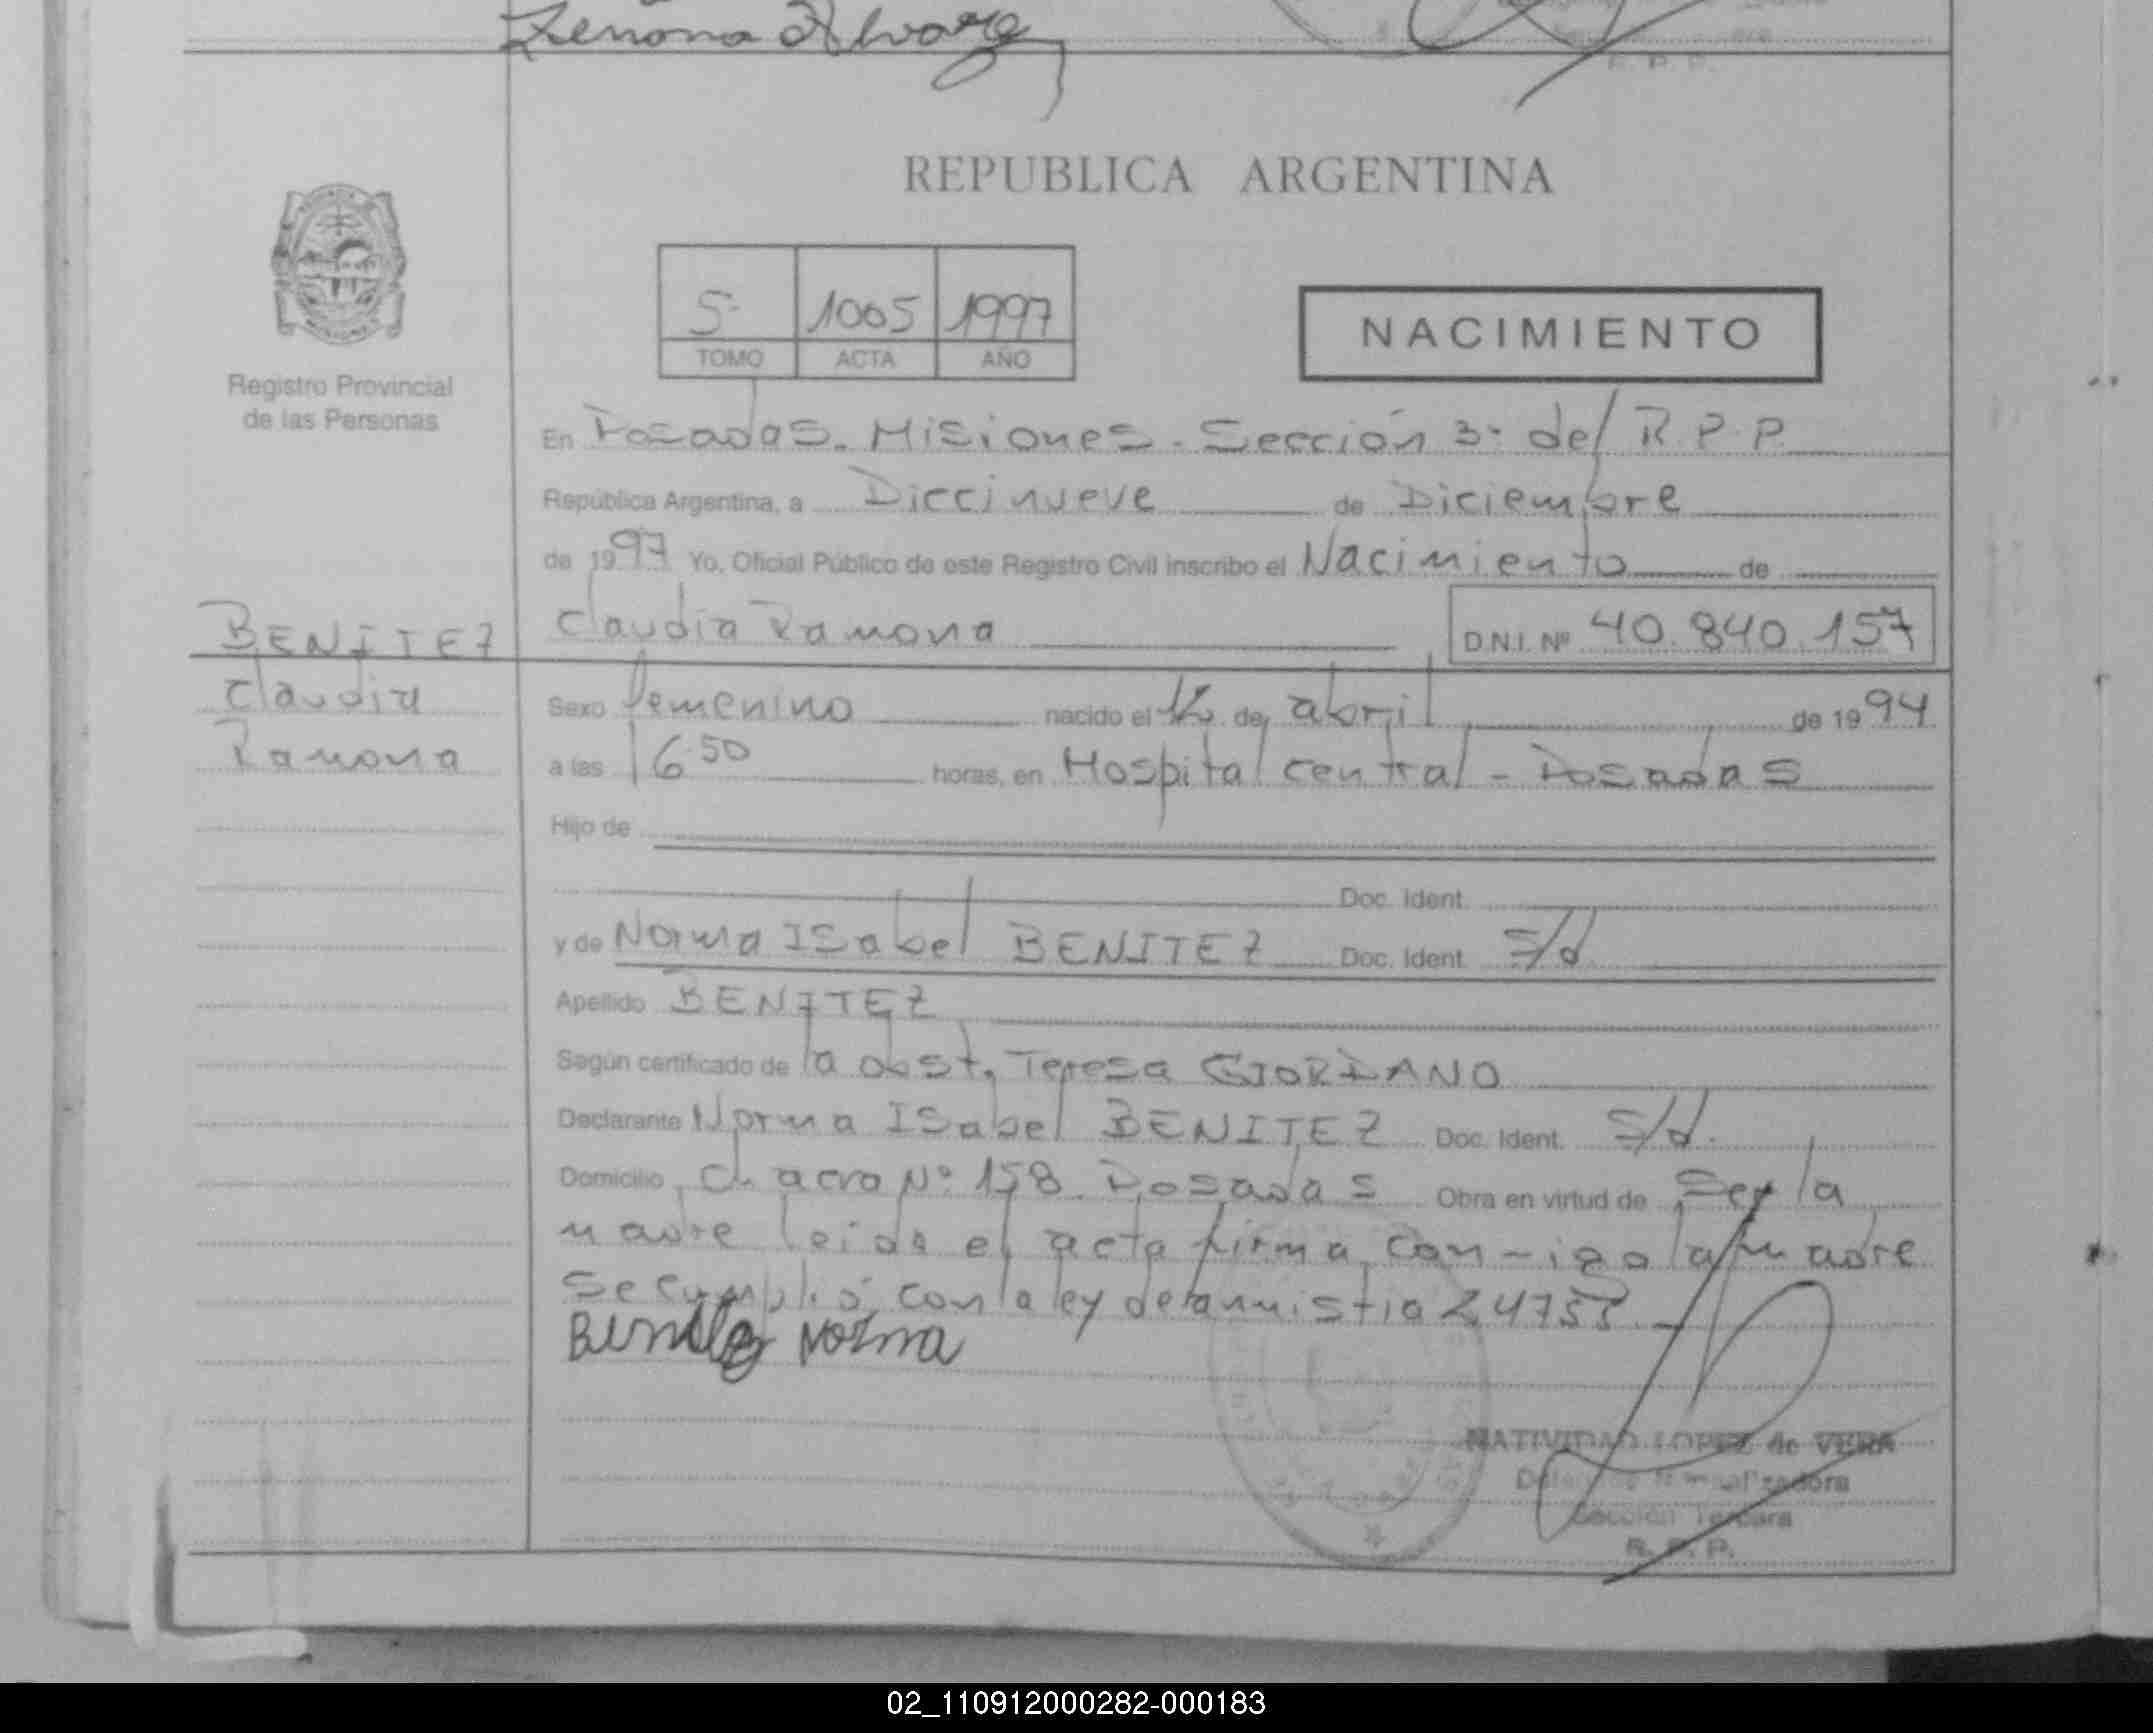 Zenona Alvarez
R. P. P.
REPUBLICA ARGENTINA
5· 1005 1997
TOMO ACTA AÑO
NACIMIENTO
Registro Provincial
de las Personas
En Posadas. Misiones. Sección 3· del R.P.P.
República Argentina, a Diecinueve de Diciembre
de 1997 Yo, Oficial Público de este Registro Civil inscribo el Nacimiento de
BENITEZ Claudia Ramona D.N.I. Nº 40.840.157
Claudia Sexo femenino nacido el de abril de 1994
Ramona a las 16 50 horas, en Hospital central - Posadas
Hijo de
Doc. Ident.
y de Norma ISabel BENITEZ Doc. Ident. S/d
Apellido BENITEZ
Según certificado de la obst. Teresa GIORDANO
Declarante Norma ISabel BENITEZ Doc. Ident. S/d.
Domicilio Chacra Nº 158 Posadas Obra en virtud de Ser la
madre leida el acta firma con-igo la madre
Se cumplió con la ley de amnistia 24755.
Benitez Norma
NATIVIDAD LOPEZ de VERA
Sección Tercera
R. P. P.
02_110912000282-000183